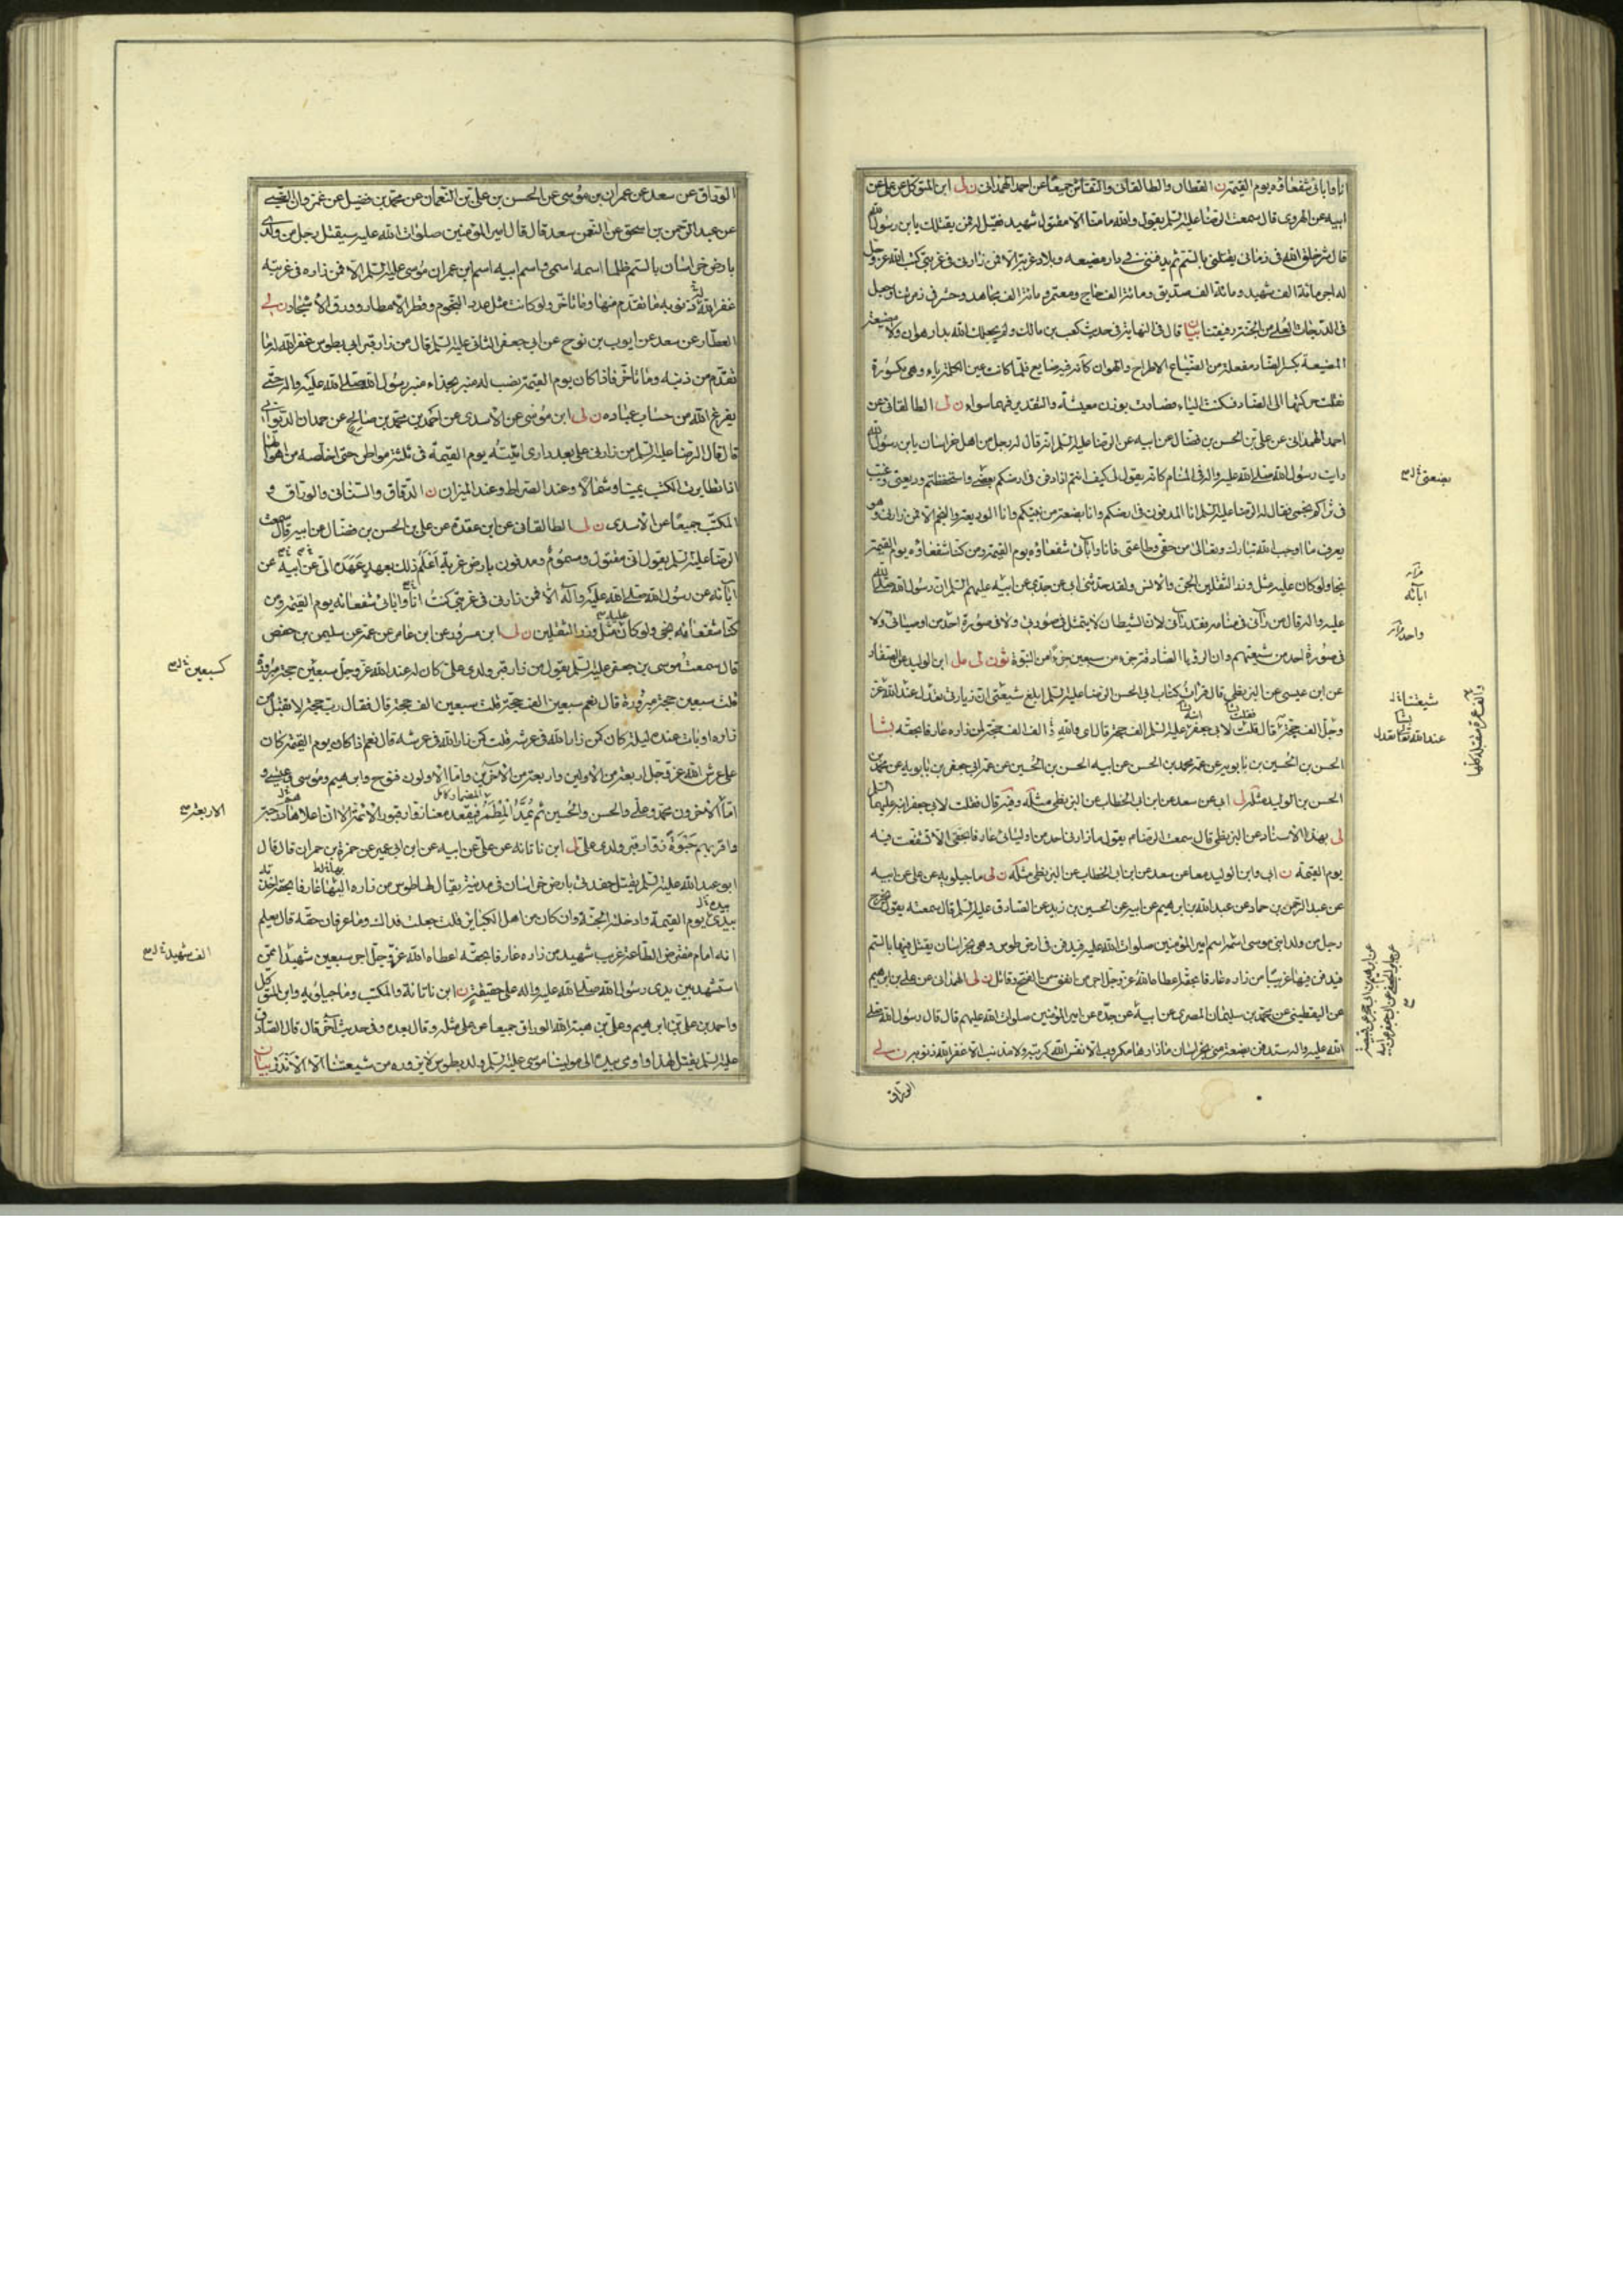 انا وابائى شفعاؤه يوم القيمة ن القطان والطالقانى والنقاش جميعا عن احمد الهمدانى ن لى ابن المتوكل عن على عن
ابيه عن الهروى قال سمعت الرضا عليه السلم يقول والله ما منا الا مقتول شهيد فقيل له فمن يقتلك يابن رسول الله
قال شر خلق الله فى زمانى يقتلنى بالسم ثم يدفننى فى دار مضيعه وبلاد غربة الا فمن زارنى فى غربتى كتب الله عز وجل
له اجر مائة الف شهيد ومائة الف صديق ومائة الف حاج ومعتمر ومائة الف مجاهد وحشر فى زمرتنا وجعل
فى الدرجات العلى من الجنة رفيقنا بيان قال فى النهاية فى حديث كعب بن مالك ولم يجعلك الله بدار هوان ولا مضيعة
المضيعة بكسر الضاد مفعلة من الضياع الاطراح والهوان كانه فيه ضايع فلما كانت عين الكلمة ياء وهى مكسورة
نقلت حركتها الى الضاد فسكنت الياء فصارت بوزن معيشة والتقدير فيهما سواء ن لى الطالقانى عن
احمد الهمدانى عن على بن الحسن بن فضال عن ابيه عن الرضا عليه السلم انه قال له رجل من اهل خراسان يابن رسول الله
رايت رسول الله صلى الله عليه واله فى المنام كانه يقول لى كيف انتم اذا دفن فى ارضكم بعضى واستحفظتم وديعتى وغيب
فى ثراكم نجمى فقال له الرضا عليه السلم انا المدفون فى ارضكم وانا بضعة من نبيكم وانا الوديعة والنجم الا فمن زارنى وهو
يعرف ما اوجب الله تبارك وتعالى من حقى وطاعتى فانا وابائى شفعاؤه يوم القيمة ومن كنا شفعاؤه يوم القيمة
نجا ولو كان عليه مثل وزر الثقلين الجن والانس ولقد حدثنى ابى عن جدى عن ابيه عليهم السلم ان رسول الله صلى الله
عليه واله قال من رآنى فى منامه فقد رآنى لان الشيطان لا يتمثل فى صورتى ولا فى صورة احد من اوصيائى ولا
فى صورة احد من شيعتهم وان الرؤيا الصادقة جزء من سبعين جزءا من النبوة ثو ن لى مل ابن الوليد عن الصفار
عن ابن عيسى عن البزنطى قال قرات كتاب ابى الحسن الرضا عليه السلم ابلغ شيعتى ان زيارتى تعدل عند الله عز
وجل الف حجة قال قلت لابى جعفر عليه السلم الف حجة قال اى والله و الف الف حجة لمن زاره عارفا بحقه بشا
الحسن بن الحسين بن بابويه عن عمه محمد بن الحسن عن ابيه الحسن بن الحسين عن عمه ابى جعفر بن بابويه عن محمد بن
الحسن بن الوليد مثله لى ابى عن سعد عن ابن ابى الخطاب عن البزنطى مثله وفيه قال فقلت لابى جعفر ابنه عليهما السلم
لى بهذا الاسناد عن البزنطى قال سمعت الرضا م يقول ما زارنى احد من اوليائى عارفا بحقى الا تشفعت فيه
يوم القيمة ن ابى وابن الوليد معا عن سعد عن ابن ابى الخطاب عن البزنطى مثله ن لى ماجيلويه عن على عن ابيه
عن عبد الرحمن بن حماد عن عبد الله بن ابراهيم عن ابيه عن الحسين بن زيد عن الصادق عليه السلم قال سمعته يقول يخرج
رجل من ولد ابنى موسى اسمه اسم امير المؤمنين صلوات الله عليه فيدفن فى ارض طوس وهى بخراسان يقتل فيها بالسم
فيدفن فيها غريبا من زاره عارفا بحقه اعطاه الله عز وجل اجر من انفق من قبل الفتح وقاتل ن لى الهمدانى عن على بن ابراهيم
عن اليقطينى عن محمد بن سليمان المصرى عن ابيه عن جده عن امير المؤمنين صلوات الله عليهم قال قال رسول الله صلى
الله عليه واله ستدفن بضعة منى بخراسان ما زارها مكروب الا نفس الله كربته ولا مذنب الا غفر الله ذنوبه ن لى
الوراق
بضعتى
ابائه
واحدة
شيعتنا
عند الله تعالى تعدل
الوراق عن سعد عن عمران بن موسى عن الحسن بن على بن النعمان عن محمد بن فضيل عن غزوان الضبى
عن عبد الرحمن بن اسحق عن النعمن سعد قال قال امير المؤمنين صلوات الله عليه سيقتل رجل من ولدى
بارض خراسان بالسم ظلما اسمه اسمى واسم ابيه اسم ابن عمران موسى عليه السلم الا فمن زاره فى غربته
غفر الله له ذنوبه ما تقدم منها وما تاخر ولو كانت مثل عدد النجوم وقطر الامطار وورق الاشجار ن لى
العطار عن سعد عن ايوب بن نوح عن ابى جعفر الثانى عليه السلم قال من زار قبر ابى بطوس غفر الله له ما
تقدم من ذنبه وما تاخر فاذا كان يوم القيمة نصب له منبر بحذاء منبر رسول الله صلى الله عليه واله حتى
يفرغ الله من حساب عباده ن لى ابن موسى عن الاسدى عن احمد بن محمد بن صالح عن حمدان الديوانى
قال قال الرضا عليه السلم من زارنى على بعد دارى اتيته يوم القيمة فى ثلثة مواطن حتى اخلصه من اهوالها
اذا تطايرت الكتب يمينا وشمالا وعند الصراط وعند الميزان ن الدقاق والسنانى والوراق و
المكتب جميعا عن الاسدى ن لى الطالقانى عن ابن عقدة عن على بن الحسن بن فضال عن ابيه قال سمعت
الرضا عليه السلم يقول انى مقتول ومسموم ومدفون بارض غربة اعلم ذلك بعهد عهده الى ابى عن ابيه عن
آبائه عن رسول الله صلى الله عليه وآله الا فمن زارنى فى غربتى كنت انا وابائى شفعائه يوم القيمة ومن
كنا شفعائه نجى ولو كان عليه مثل وزر الثقلين ن لى ابن مسرور عن ابن عامر عن عمه عن سليمن بن حفص
قال سمعت موسى بن جعفر عليه السلم يقول من زار قبر ولدى على كان له عند الله عز وجل سبعين حجة مبرورة
قلت سبعين حجة مبرورة قال نعم سبعين الف حجة قلت سبعين الف حجة قال فقال رب حجة لا تقبل من
زاره او بات عنده ليلة كان كمن زار الله فى عرشه قلت كمن زار الله فى عرشه قال نعم اذا كان يوم القيمة كان
على عرش الله عز وجل اربعة من الاولين واربعة من الاخرين واما الاولون فنوح وابراهيم وموسى وعيسى و
اما الاخرون محمد وعلى والحسن والحسين ثم يمد المطمر فيقعد معنا زوار قبور الائمة الا ان اعلاها درجة
واقربهم حبوة زوار قبر ولدى على لى ابن ناتانه عن على عن ابيه عن ابن ابى عمير عن حمزة بن حمران قال قال
ابو عبد الله عليه السلم يقتل حفدتى بارض خراسان فى مدينة يقال لها طوس من زاره اليها عارفا بحقه اخذته
بيدى يوم القيمة وادخلته الجنة وان كان من اهل الكبائر قلت جعلت فداك وما عرفان حقه قال يعلم
انه امام مفترض الطاعة غريب شهيد من زاره عارفا بحقه اعطاه الله عز وجل اجر سبعين شهيدا ممن
استشهد بين يدى رسول الله صلى الله عليه واله على حقيقة ن ابن ناتانة والمكتب وماجيلويه وابن المتوكل
واحمد بن على بن ابراهيم وعلى بن هبة الله الوراق جميعا عن على مثله وقال بعده وفى حديث آخر قال قال الصادق
عليه السلم يقتل لهذا واومى بيده الى مولينا موسى عليه السلم ولد بطوس لا يزوره من شيعتنا الا الاندر بيان
كسبعين
الاربعة
الف شهيد